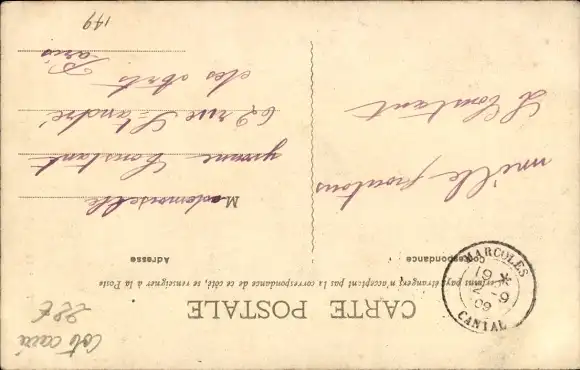 CARTE POSTALE
Certains pays étrangers n'acceptent pas la correspondance de ce côté, se renseigner à la Poste
Correspondance
Adresse
mille
L Constant
Mademoiselle
yvonne Constant
62 rue St andré
des arts
Paris
149
MARCOLES
19
09
CANTAL
22€